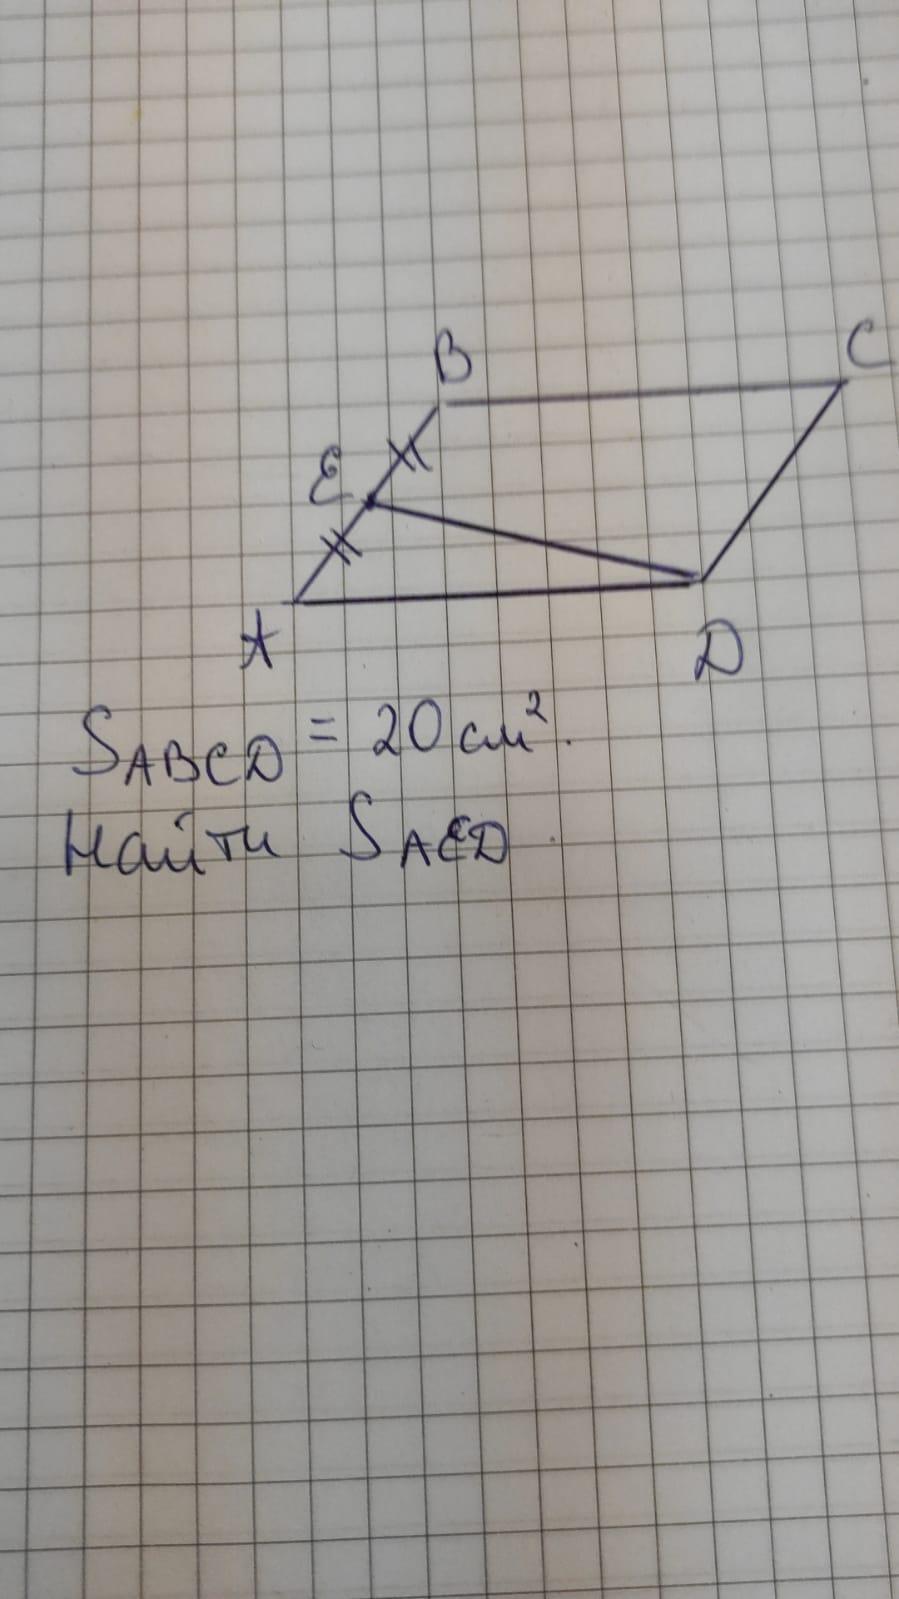 B
C
E
A
D
S ABCD = 20 см².
Найти S AED.